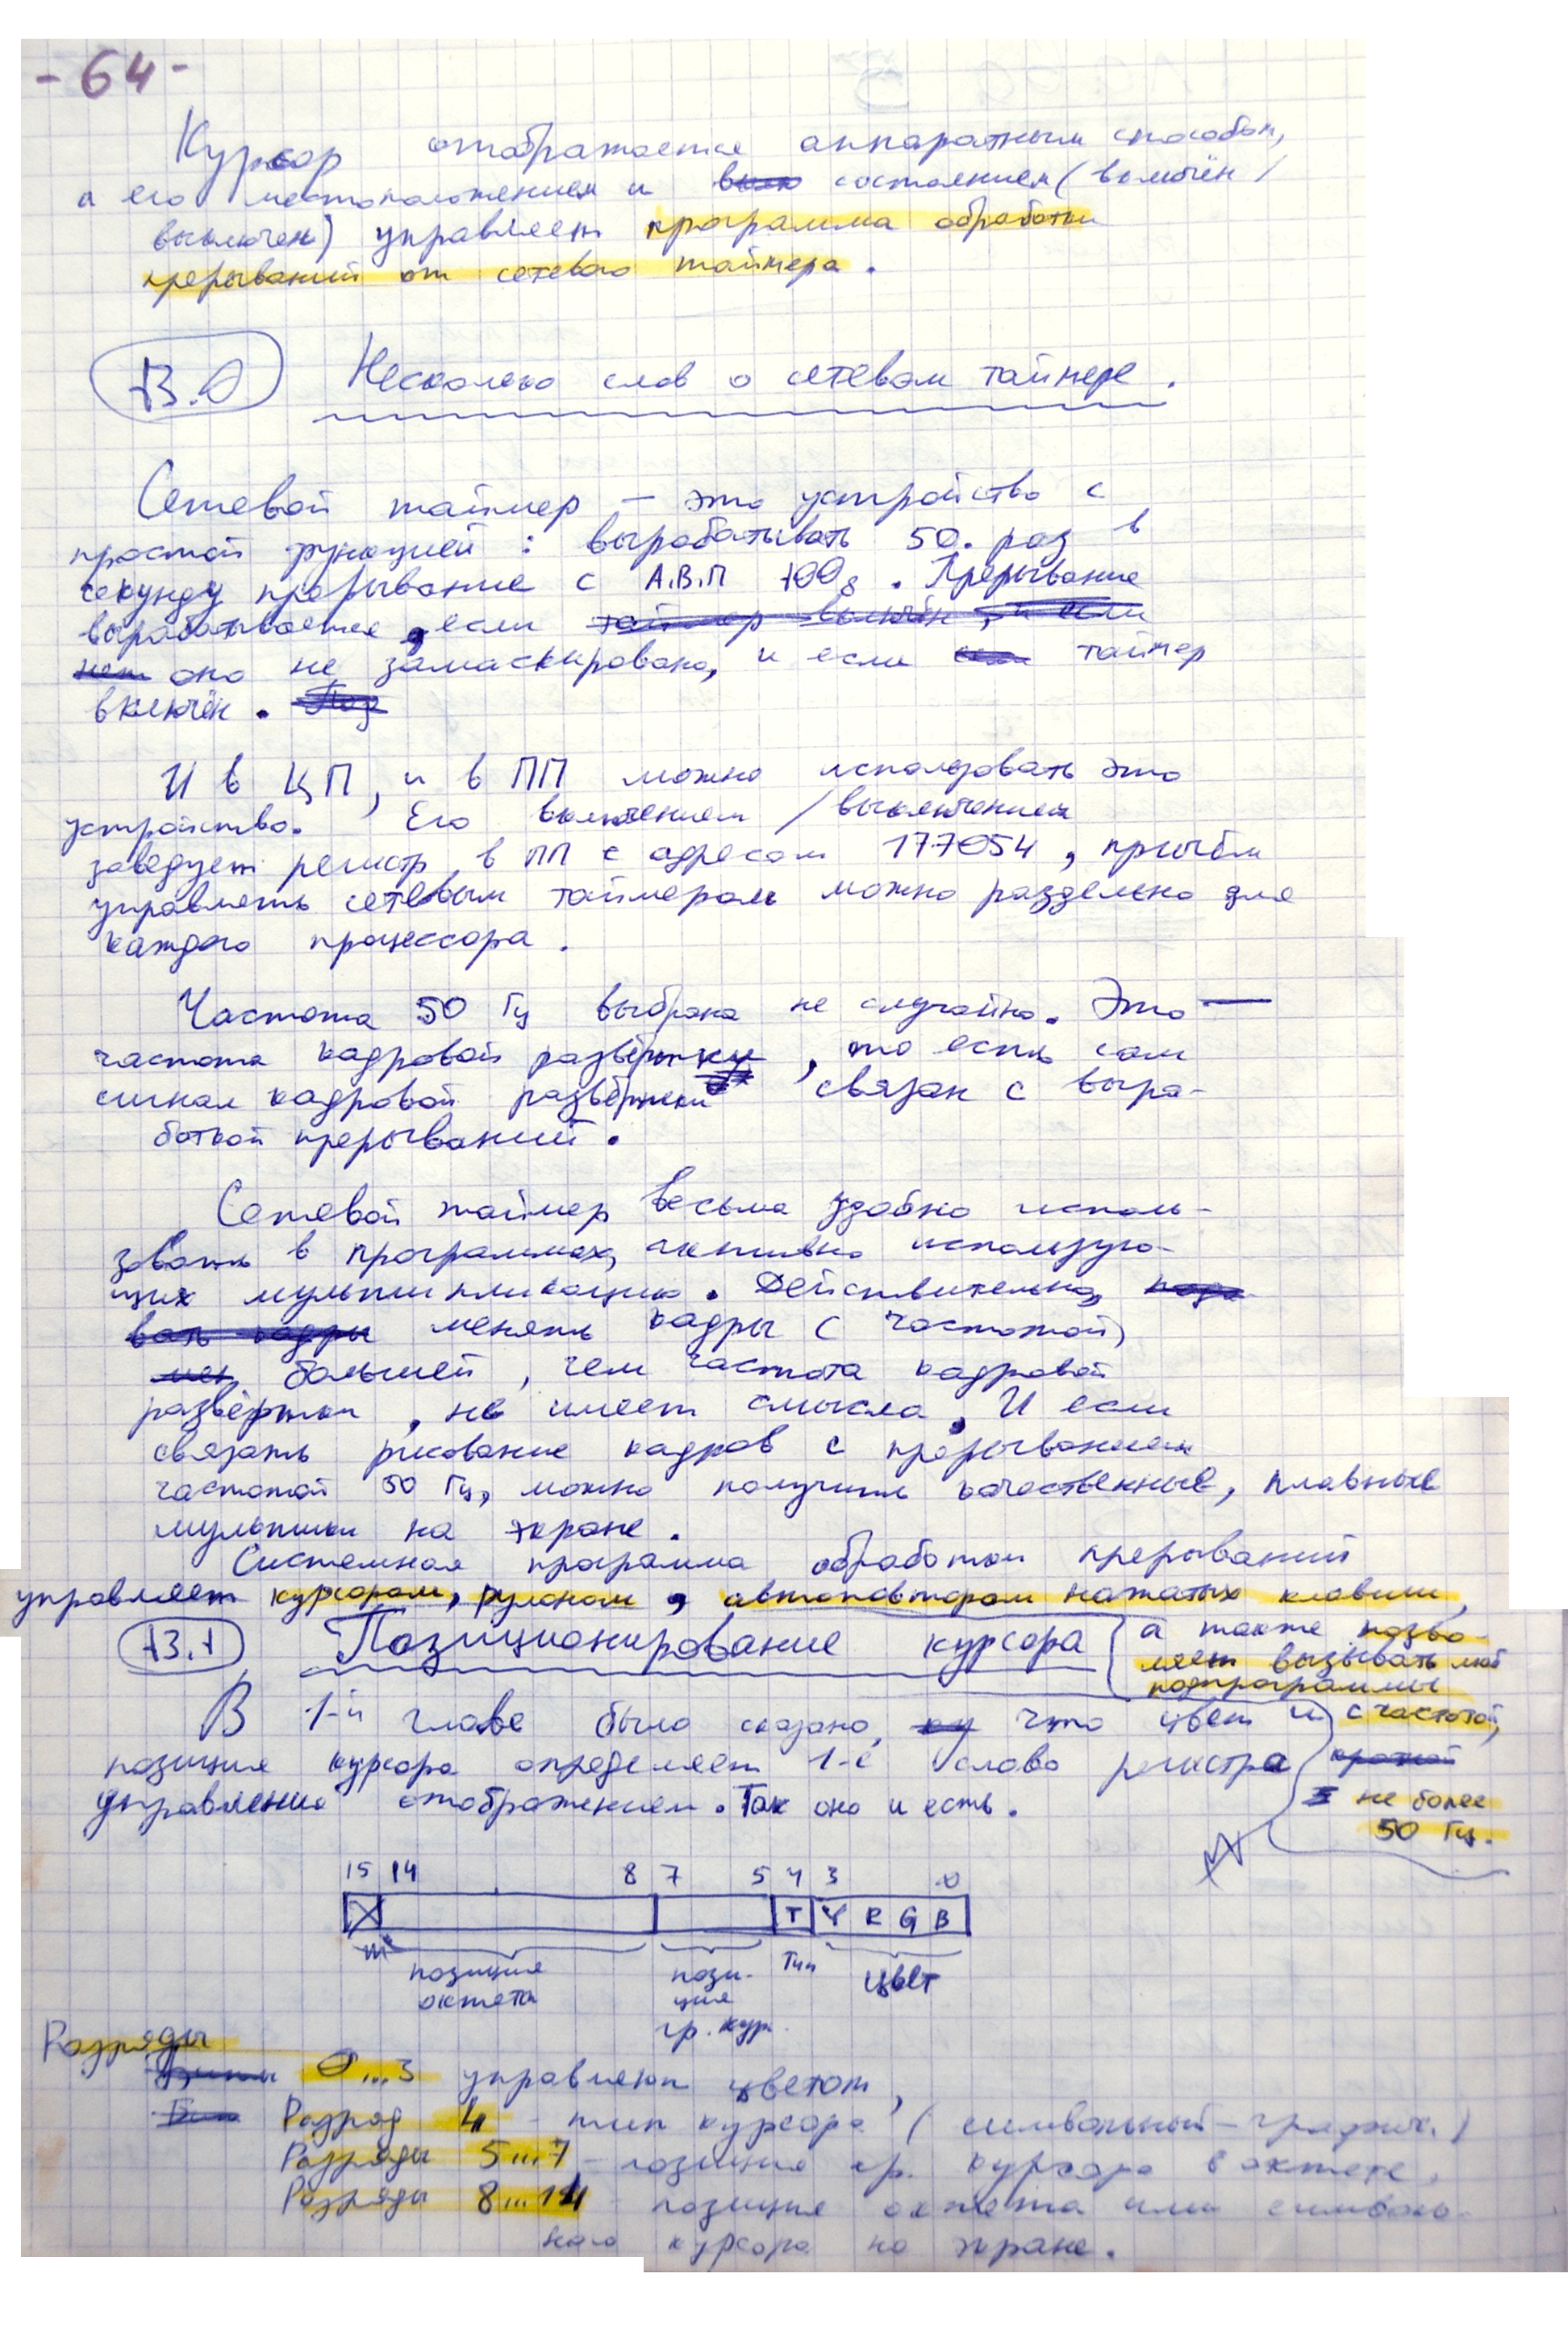 - 64 -
Курсор отображается аппаратным способом,
а его местоположением и состоянием (включён /
выключен) управляет программа обработки
прерываний от сетевого таймера.
13.0 Несколько слов о сетевом таймере.
Сетевой таймер — это устройство с
простой функцией: вырабатывать 50. раз в
секунду прерывание с А.В.П 100₈. Прерывание
вырабатывается, если таймер включён, и если
нет оно не замаскировано, и если таймер
включён. Под
И в ЦП, и в ПП можно использовать это
устройство. Его включением / выключением
заведует регистр в ПП с адресом 177054, причём
управлять сетевым таймером можно раздельно для
каждого процессора.
Частота 50 Гц выбрана не случайно. Это —
частота кадровой развёртки, то есть сам
сигнал кадровой развёртки связан с выра-
боткой прерываний.
Сетевой таймер весьма удобно исполь-
зовать в программах, активно использую-
щих мультипликацию. Действительно,
вать кадры менять кадры с частотой,
большей, чем частота кадровой
развёртки, не имеет смысла. И если
связать рисование кадров с прерыванием
частотой 50 Гц, можно получить качественные, плавные
мультики на экране.
Системная программа обработки прерываний
управляет курсором, рулоном, автоповтором нажатых клавиш,
а также позво-
ляет вызывать
подпрограммы
с частотой,
кратной
не более
50 Гц.
13.1 Позиционирование курсора
В 1-й главе было сказано, что цвет и
позиция курсора определяет 1-е слово регистра
управления отображением. Так оно и есть.
15 14 8 7 5 4 3 0
T Y R G B
позиция октета
пози-ция гр. кур.
Тип
Цвет
Разряды
0...3 управляют цветом,
Разряд 4 - тип курсора (символьный - графич.)
Разряды 5...7 - позиция гр. курсора в октете,
Разряды 8...14 - позиция октета или символь-
ного курсора на экране.